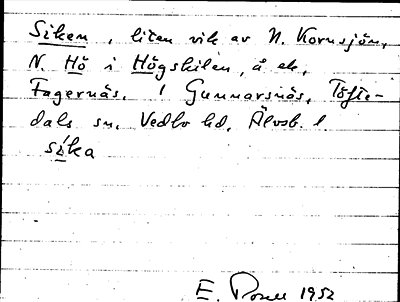 Siken, liten vik av N. Kornsjön,
N. Hö i Högskilen, å ek,
Fagernäs. / Gunnarsnäs, Töfte-
dals sn, Vedbo hd, Älvsb. l.
síka
E. 1952